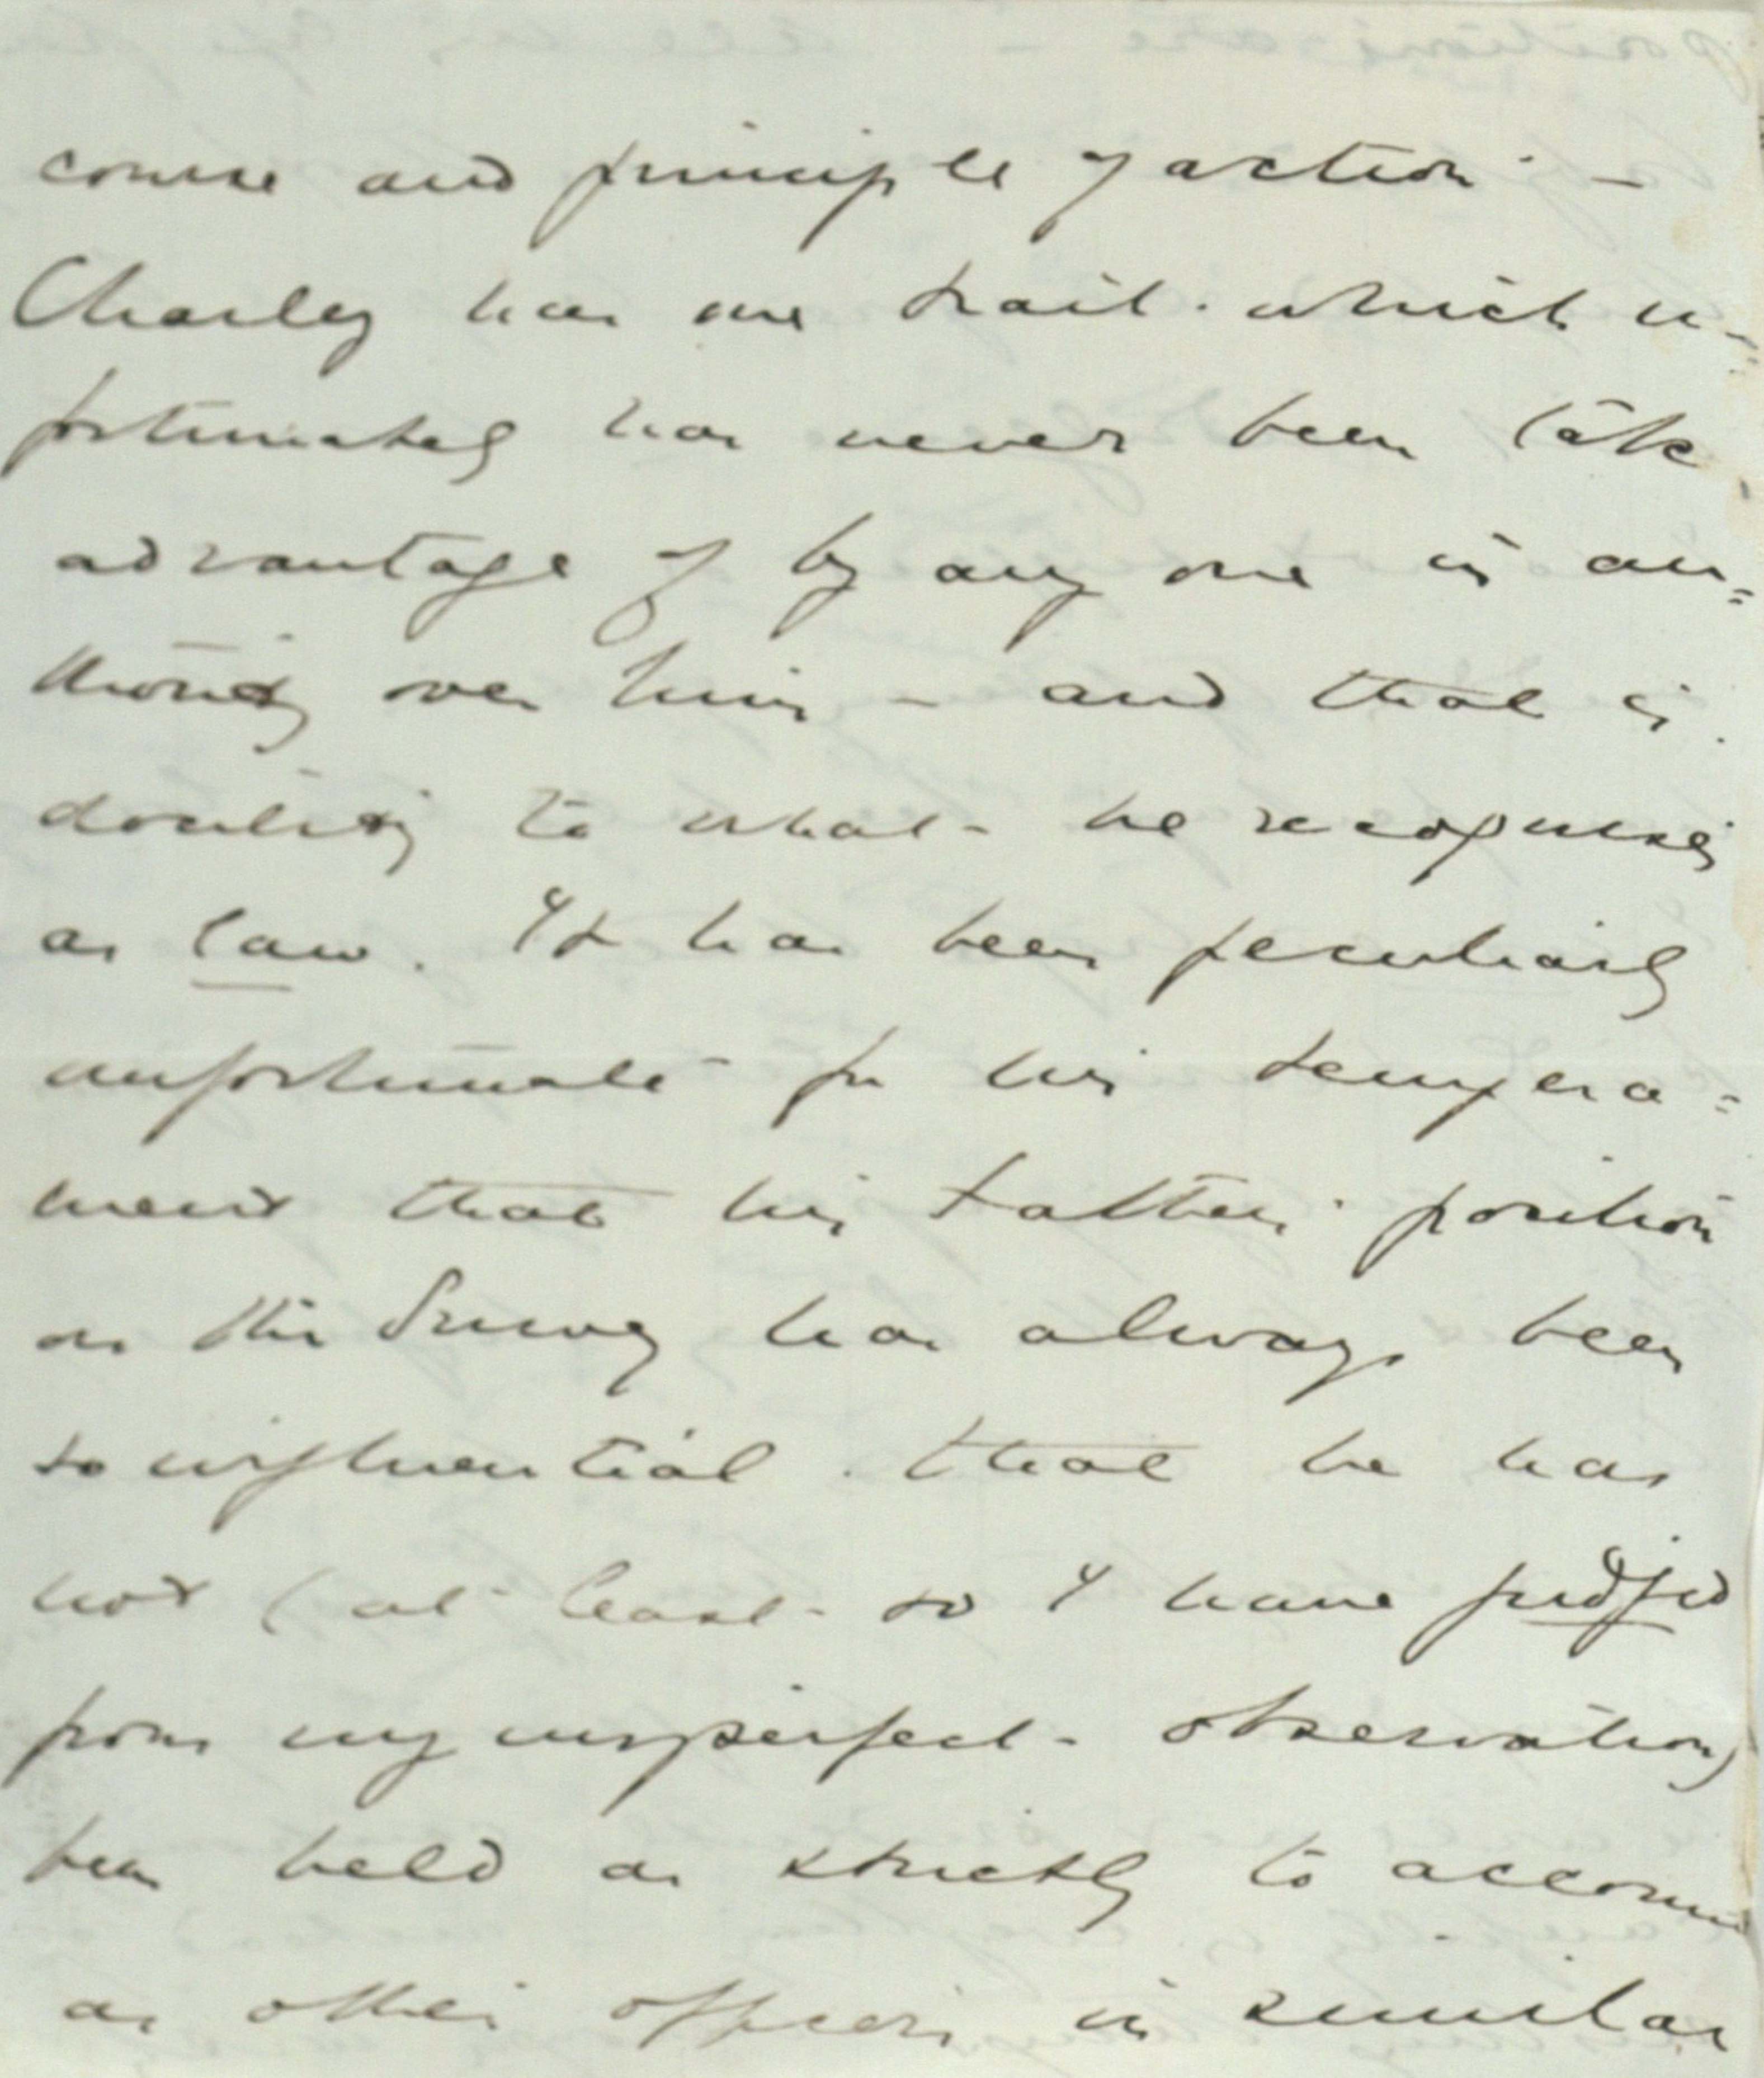 course and principle of action —
Charley has one trait which un-
fortunately has never been take
advantage of by any one in au=
thority over him — and that is
docility to what he recognizes
as law. It has been peculiarly
unfortunate for his tempera=
ment that his Father's position
on the Survey has always been
so influential that he has
not (at least so I have judged
from my imperfect observation)
been held as strictly to account
as other officers in similar